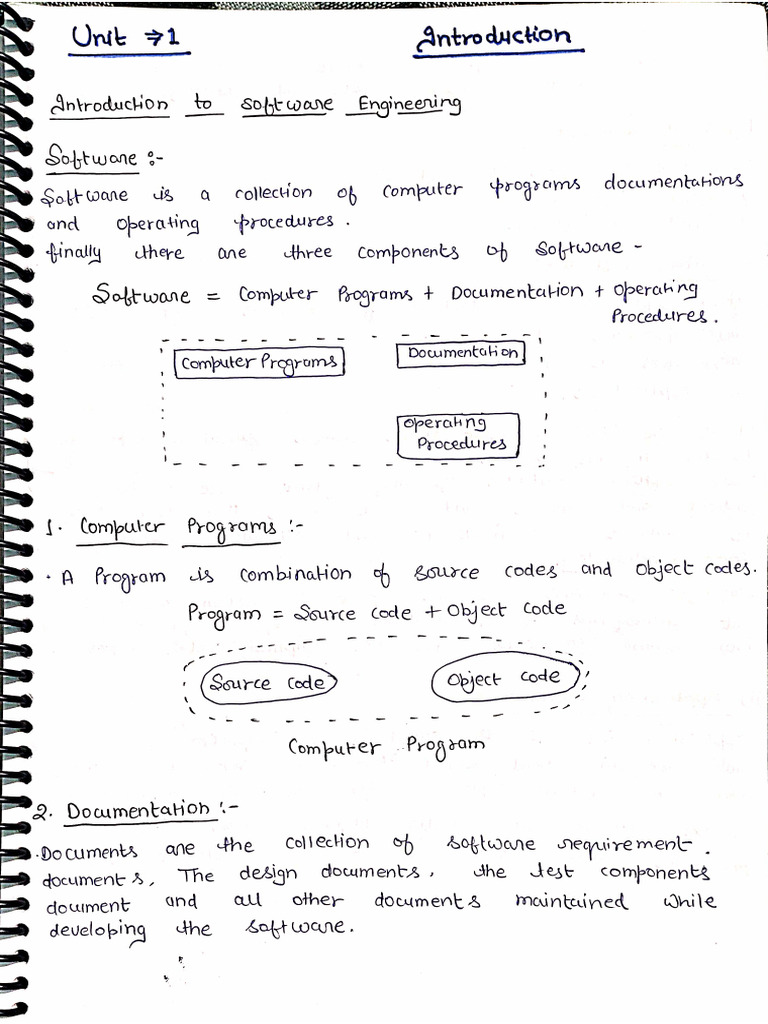 Unit ⇒ 1 Introduction
Introduction to software Engineering
Software :-
Software is a collection of computer programs documentations
and operating procedures.
finally there are three components of software -
Software = Computer Programs + Documentation + Operating
Procedures.
Computer Programs Documentation
Operating
Procedures
1. Computer Programs :-
· A Program is combination of source codes and object codes.
Program = Source code + Object code
Source code Object code
Computer Program
2. Documentation :-
· Documents are the collection of software requirement.
documents. The design documents, the test components
document and all other documents maintained while
developing the software.